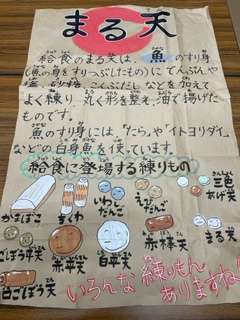 まる天
給食のまる天は、魚のすり身
(魚の身をすりつぶしたもの)にでんぷんや
塩、砂糖、こくぶどう などを加えて
よく練り、丸く形を整え、油で揚げた
ものです。
魚のすり身には、"たら"や"イトヨリダイ"
などの白身魚を使っています。
給食に登場する練りもの
かまぼこ
ちくわ
いわしだんご
えびだんご
三色あげ天
ごぼう天
赤平天
白平天
赤棒天
まる天
白ごぼう天
いろんな練りもんありますね!